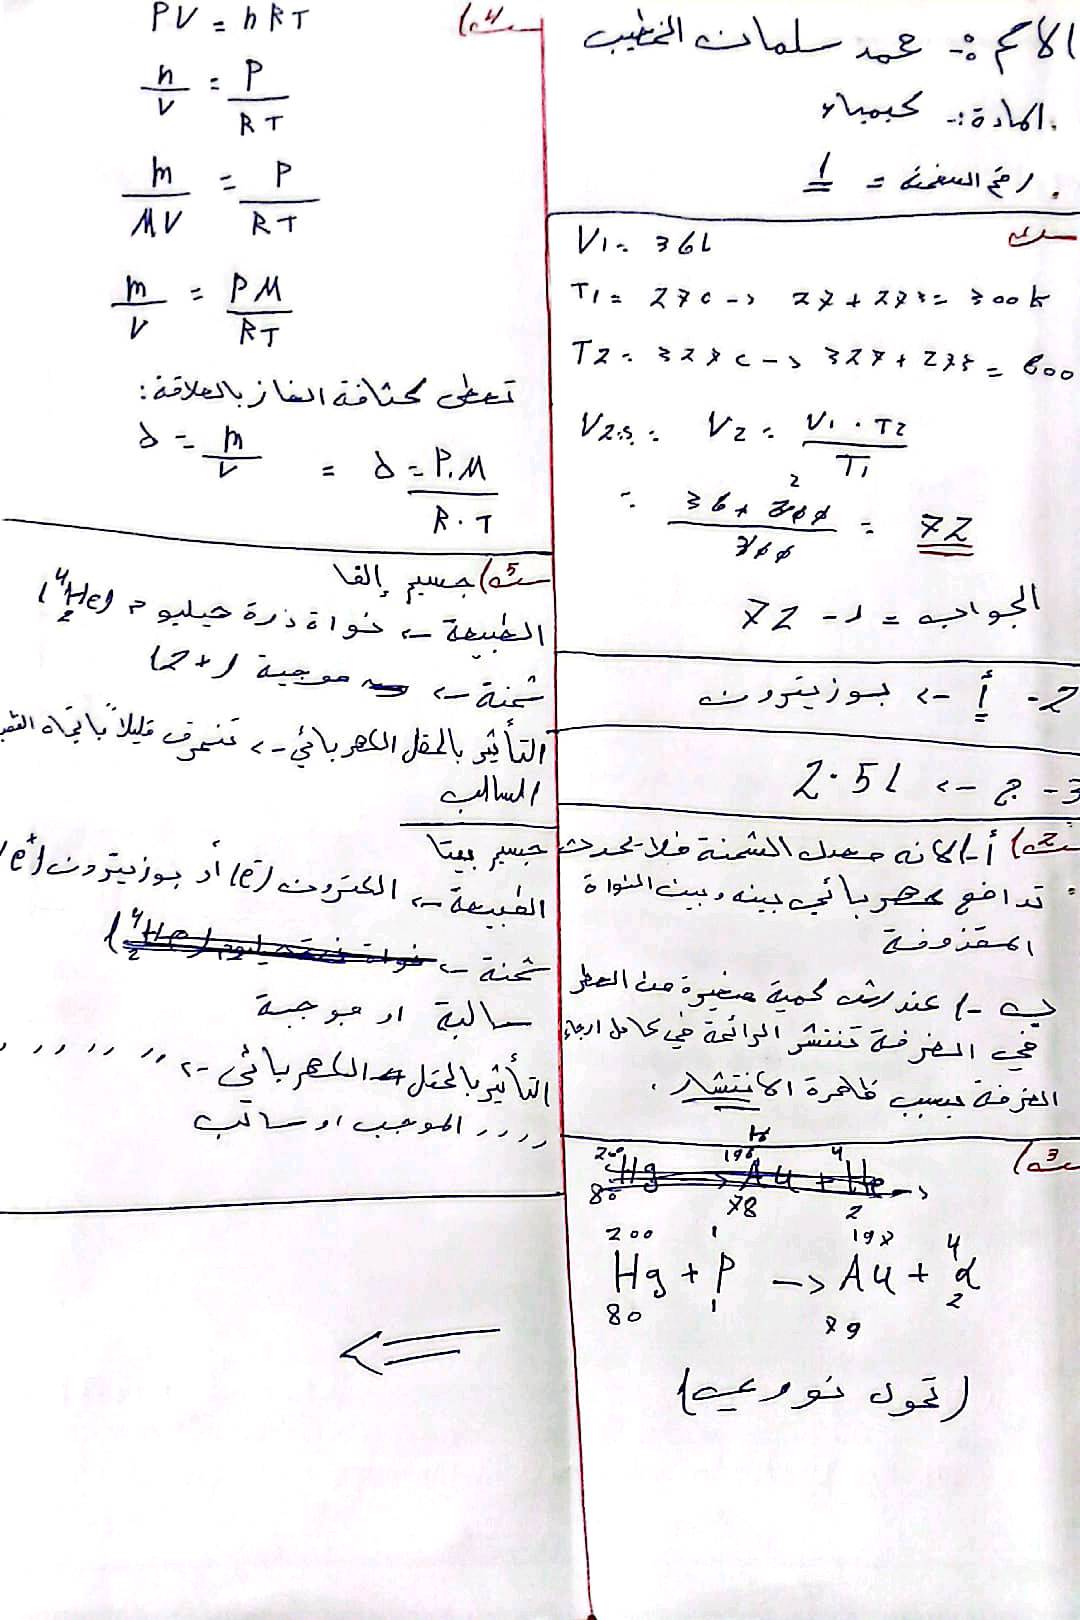 الاسم :- محمد سلمان الخطيب
المادة :- كيمياء
رقم الصفحة = 1
س1)
V1 = 36L
T1 = 27c -> 27 + 273 = 300k
T2 = 327c -> 327 + 273 = 600
V2 = ? : V2 = V1 . T2 / T1
= 36 × 600 / 300 = 72
الجواب = د - 72
2- أ -> بوزيترون
3- ج -> 2.5L
س2) أ- لانه معدل الشحنة فلا يحدث
تدافع كهربائي بينه وبين النواة
المقذوفة
ب -) عند رش كمية صغيرة من العطر
في الغرفة تنتشر الرائحة في كامل ارجاء
الغرفة بسبب ظاهرة الانتشار .
س3)
200 80 Hg -> 196 78 Au + 4 2 He ->
200 80 Hg + 1 1 P -> 197 79 Au + 4 2 α
(تحول نووي)
س4)
PV = nRT
n/V = P/RT
m/MV = P/RT
m/V = PM/RT
تعطى كثافة الغاز بالعلاقة :
d = m/V = d = P.M/R.T
س5) جسيم إلفا
الطبيعة -> نواة ذرة هيليوم (4 2 He)
شحنة -> موجبة (+2)
التأثير بالحقل الكهربائي -> تنحرف قليلاً باتجاه
السالب
جسيم بيتا
الطبيعة -> الكترون (e-) أو بوزيترون (e+)
شحنة -> نواة ذرة هيليوم (4 2 He)
سالبة او موجبة
التأثير بالحقل الكهربائي -> ,, ,, ,, ,,
,, ,, الموجب او سالب